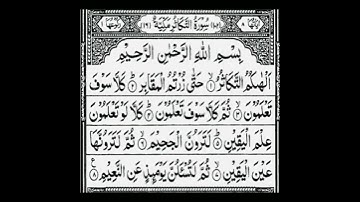 اٰيَاتُهَا ٨ سُوْرَةُ التَّكَاثُرِ مَكِّيَّةٌ (١٦) رُكُوْعُهَا ١
بِسْمِ اللّٰهِ الرَّحْمٰنِ الرَّحِيْمِ
اَلْهٰىكُمُ التَّكَاثُرُ ۙ١ حَتّٰى زُرْتُمُ الْمَقَابِرَ ؕ٢ كَلَّا سَوْفَ
تَعْلَمُوْنَ ۙ٣ ثُمَّ كَلَّا سَوْفَ تَعْلَمُوْنَ ؕ٤ كَلَّا لَوْ تَعْلَمُوْنَ
عِلْمَ الْيَقِيْنِ ؕ٥ لَتَرَوُنَّ الْجَحِيْمَ ۙ٦ ثُمَّ لَتَرَوُنَّهَا
عَيْنَ الْيَقِيْنِ ۙ٧ ثُمَّ لَتُسْـَٔلُنَّ يَوْمَىِٕذٍ عَنِ النَّعِيْمِ ٨